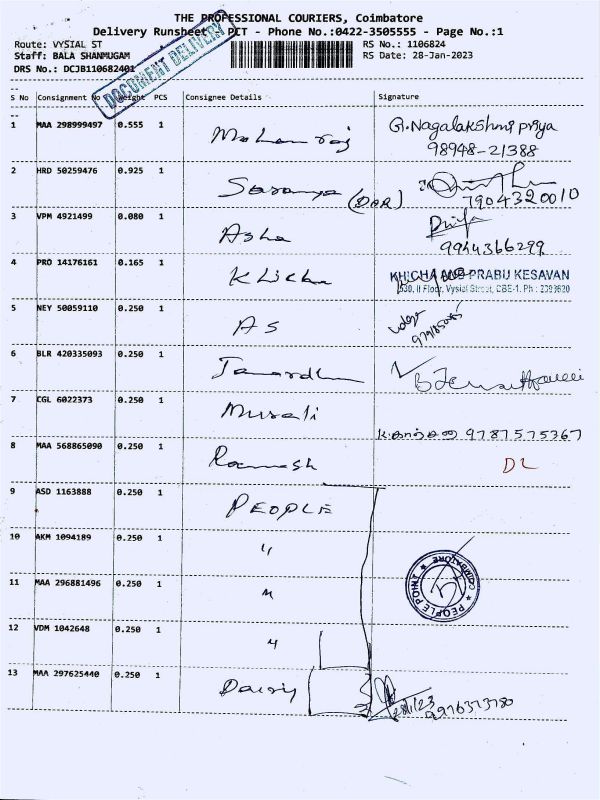 THE PROFESSIONAL COURIERS, Coimbatore
Delivery Runsheet - PCT - Phone No.:0422-3505555 - Page No.:1
Route: VYSIAL ST RS No.: 1106824
Staff: BALA SHANMUGAM RS Date: 28-Jan-2023
DRS No.: DCJB110682401
DOCUMENT DELIVERY
S No Consignment No Weight PCS Consignee Details Signature
1 MAA 298999497 0.555 1 Mohan raj G.Nagalakshmi priya
98948-21388
2 HRD 50259476 0.925 1 Saranya 7904320010
3 VPM 4921499 0.080 1 Asha Priya
9944366299
4 PRO 14176161 0.165 1 Khicha KHICHA AND PRABU KESAVAN
530, II Floor, Vysial Street, CBE-1. Ph : 2393820
5 NEY 50059110 0.250 1 AS
6 BLR 420335093 0.250 1
7 CGL 6022373 0.250 1 Murali
9787575367
8 MAA 568865090 0.250 1 Ramesh DL
9 ASD 1163888 0.250 1 PEOPLE
10 AKM 1094189 0.250 1 "
PEOPLE POINT ★ COIMBATORE ★
11 MAA 296881496 0.250 1 "
12 VDM 1042648 0.250 1 "
13 MAA 297625440 0.250 1 28/1/23